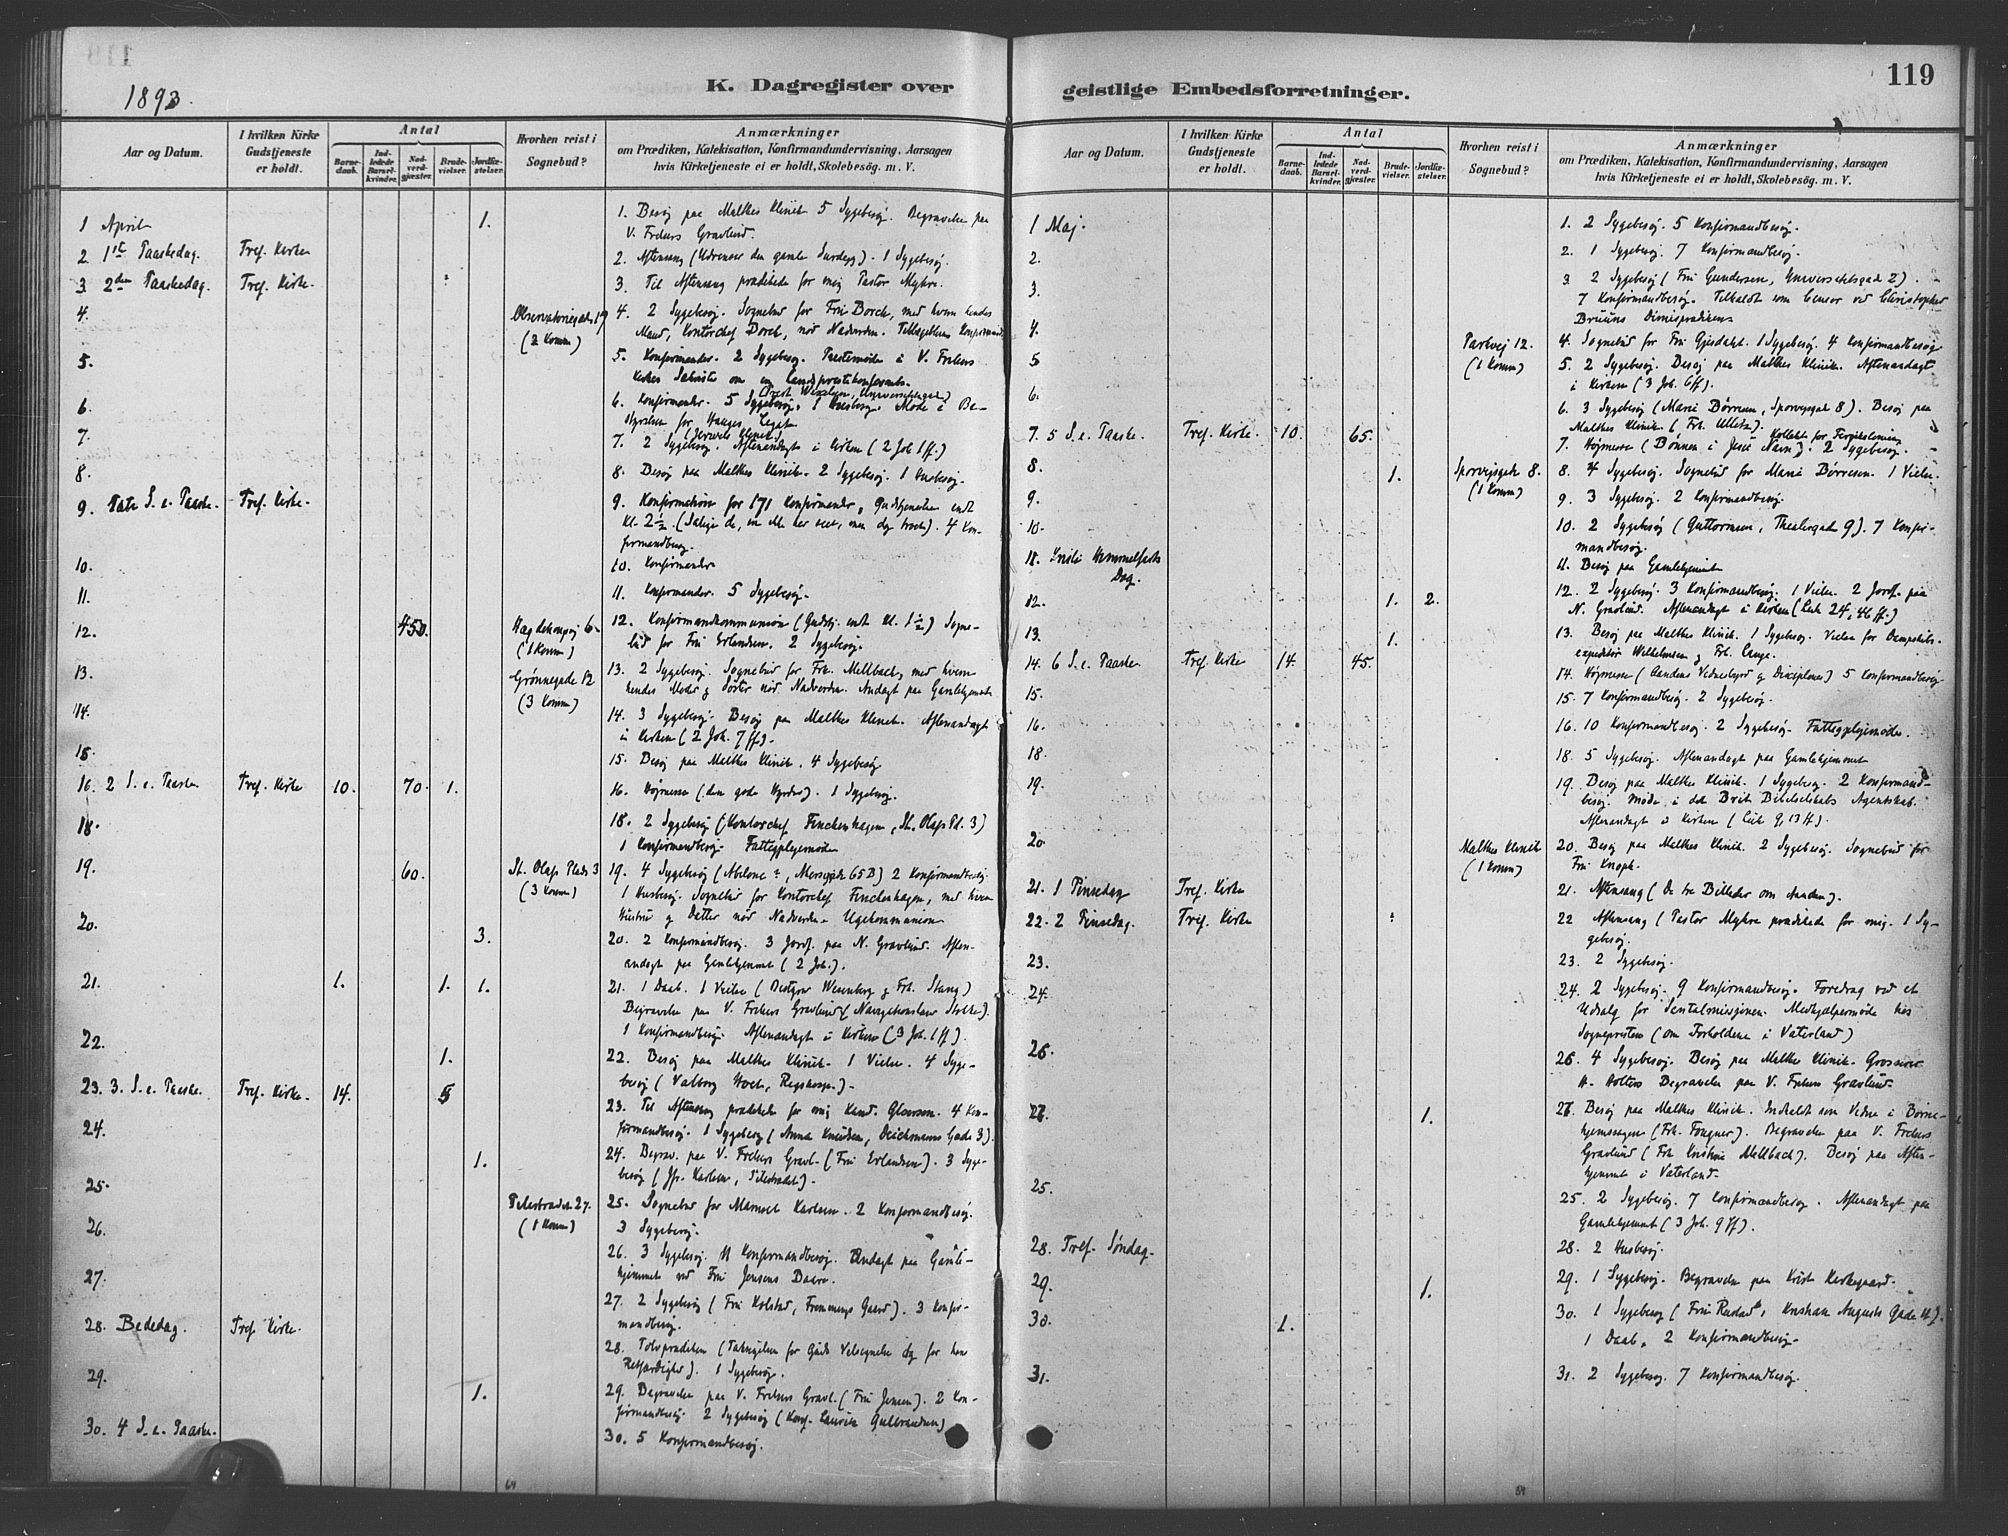 1893.
K. Dagregister over
Aar og Datum.
I hvilken Kirke Gudstjeneste er holdt.
Antal
Barnedaab.
Indledede Barselkvinder.
Nadverdgjæster.
Brudevielser.
Jordfæstelser.
Hvorhen reist i Sognebud?
Anmærkninger
om Prædiken, Katekisation, Konfirmandundervisning, Aarsagen
hvis Kirketjeneste ei er holdt, Skolebesøg. m. V.
1 April
1.
1. Besøg paa Malthes Klinik 5 Sygebesøg. Begravelse paa
V. Frelsers Gravlund.
2 1ste Paaskedag. Tref. Kirke
2. Aftensang (Udrenser den gamle Surdeig). 1 Sygebesøg.
3 2den Paaskedag. Tref. Kirke.
3. Til Aftensang prædikede for mig Pastor Myhre.
4.
Observatoriegade 19
(2 Komm)
4. 2 Sygebesøg. Sognebud for Fru Borch, med hvem hendes
Mand, Kontorchef Borch, nød Nadverden.
5.
5. Konfirmander. 2 Sygebesøg. Præstemøde i V. Frelsers
Kirkes Sakristi om en
6.
6. Konfirmander. 5 Sygebesøg. 1 Husbesøg. Møde i Be-
styrelsen for Hauges Legat.
7.
7. 2 Sygebesøg. Aftenandagt i Kirken (2 Joh 1 ff.)
8.
8. Besøg paa Malthes Klinik. 2 Sygebesøg. 1 Husbesøg.
9 1ste S. e. Paaske. Tref. Kirke.
9. Konfirmation for 171 Konfirmander, Gudstjenesten endt
Kl. 2 1/2. (Salige de, som ikke har seet, men dog troet). 4 Kon-
firmandbesøg.
10.
10. Konfirmander
11.
11. Konfirmander. 5 Sygebesøg.
12.
450.
(1 Komm)
12. Konfirmandkommunion (Gudstj. endt Kl. 1 1/2) Sogne-
bud for Fru Erlandsen. 2 Sygebesøg.
13.
Grønnegade 12
(3 Komm)
13. 2 Sygebesøg. Sognebud for Frk. Mellbach, med hvem
hendes Moder og Søster nød Nadverden. Andagt paa Gamlehjemmet
14.
14. 3 Sygebesøg. Besøg paa Malthes Klinik. Aftenandagt
i Kirken (2 Joh. 7 ff).
15.
15. Besøg paa Malthes Klinik. 4 Sygebesøg
16. 2 S. e. Paaske Tref. Kirke 10. 70. 1.
16. Højmesse (den gode Hyrde). 1 Sygebesøg.
18.
18. 2 Sygebesøg (Kontorchef Finckenhagen, St. Olafs Pl. 3)
1 Konfirmandbesøg. Fattigplejemøde
19.
60.
St. Olafs Plads 3
(3 Komm)
19. 4 Sygebesøg 2 Konfirmandbesøg.
1 Husbesøg. Sognebud for Kontorchef Finckenhagen, med hvem
Hustru og Datter nød Nadverden. Ugekommunion
20.
3.
20. 2 Konfirmandbesøg. 3 Jordf. paa N. Gravlund. Aften-
andagt paa Gamlehjemmet (2 Joh.).
21.
1. 1. 1.
21. 1 Daab. 1 Vielse (Bestyrer Wesenberg og Frk. Stang)
Begravelse paa V. Frelsers Gravlund
1 Konfirmandbesøg. Aftenandagt i Kirken (3 Joh. 1 ff).
22.
1.
22. Besøg paa Malthes Klinik. 1 Vielse. 4 Syge-
besøg (Valborg
23. 3. S. e. Paaske. Tref. Kirke. 14. 5
23. Til Aftensang prædikede for mig Kand. Gloersen. 4 Kon-
firmandbesøg. 1 Sygebesøg (Anna Knudsen, Deichmanns Gade 3).
24.
1.
24. Begrav. paa V. Frelsers Gravl. (Fru Erlandsen). 3 Syge-
besøg (Jfr. Karlsen, Pilestrædet).
25.
Pilestrædet 27.
(1 Komm)
25. Sognebud for Mamsel Karlsen. 2 Konfirmandbesøg.
3 Sygebesøg.
26.
26. 3 Sygebesøg. 11 Konfirmandbesøg. Andagt paa Gamle-
hjemmet ved Fru Jensens Baare.
27.
27. 2 Sygebesøg (Fru Kolstad, Gaard). 3 Konfir-
mandbesøg.
28. Bededag. Tref. Kirke.
28. Tolvprædiken (Taksigelsen for Guds Velsignelse og for hans
Retfærdighed). 1 Sygebesøg.
29.
1.
29. Begravelse paa V. Frelsers Gravl. (Fru Jensen). 2 Kon-
firmandbesøg. 2 Sygebesøg
30. 4 S. e. Paaske.
30. 5 Konfirmandbesøg.
64
geistlige Embedsforretninger.
119
Aar og Datum.
I hvilken Kirke Gudstjeneste er holdt.
Antal
Barnedaab.
Indledede Barselkvinder.
Nadverdgjæster.
Brudevielser.
Jordfæstelser.
Hvorhen reist i Sognebud?
Anmærkninger
om Prædiken, Katekisation, Konfirmandundervisning, Aarsagen
hvis Kirketjeneste ei er holdt, Skolebesøg. m. V.
1 Maj.
1. 2 Sygebesøg. 5 Konfirmandbesøg.
2.
2. 1 Sygebesøg. 7 Konfirmandbesøg.
3.
3 2 Sygebesøg (Fru Gundersen, Universitetsgad 2).
7 Konfirmandbesøg. Tilkaldt som Censor ved Christopher
Bruuns Dimisprædiken
4.
Parkvej 12.
(1 Komm)
4. Sognebud for Fru Gjesdahl. 1 Sygebesøg. 4 Konfirmandbesøg
5
5. 2 Sygebesøg. Besøg paa Malthes Klinik. Aftenandagt
i Kirken (3 Joh. 6 ff).
6.
6. 3 Sygebesøg (Marie Børresen, Sporvejsgad 8). Besøg paa
Malthes Klinik
7. 5 S. e. Paaske. Tref. Kirke. 10. 65.
Kollekt for Feriekolonien
7. Højmesse (Bønnen i Jesu Navn). 2 Sygebesøg.
8.
1.
Sporvejsgade 8.
(1 Komm)
8. 4 Sygebesøg. Sognebud for Marie Børresen. 1 Vielse.
9.
9. 3 Sygebesøg. 2 Konfirmandbesøg
10.
10. 2 Sygebesøg (Guttormsen, Theatergad 9). 7 Konfir-
mandbesøg.
Kristi Himmelfarts
Dag.
11. Besøg paa Gamlehjemmet
12.
1. 2.
12. 2 Sygebesøg. 3 Konfirmandbesøg. 1 Vielse. 2 Jordf. paa
N. Gravlund. Aftenandagt i Kirken (Luk 24, 46 ff.)
13.
1.
13. Besøg paa Malthes Klinik. 1 Sygebesøg. Vielse for Dampskibs-
expeditør Wilhelmsen og Frk. Lange.
14. 6 S. e. Paaske Tref. Kirke 14. 45.
14. Højmesse (Aandens Vidnesbyrd og Disciplenes) 5 Konfirmandbesøg
15.
15. 7 Konfirmandbesøg. 2 Sygebesøg.
16.
16. 10 Konfirmandbesøg. 2 Sygebesøg. Fattigplejemøde.
18.
18. 5 Sygebesøg. Aftenandagt paa Gamlehjemmet
19.
19. Besøg paa Malthes Klinik. 1 Sygebesøg. 2 Konfirmand-
besøg. Møde i det Brit. Bibelselskabs Agentskab.
Aftenandagt i Kirken (Luk 9, 13 ff).
20
Malthes Klinik
(1 Komm)
20. Besøg paa Malthes Klinik. 2 Sygebesøg. Sognebud for
Fru Knoph.
21. 1 Pinsedag Tref. Kirke
21. Aftensang (De tre Billeder om Aanden).
22. 2 Pinsedag. Tref. Kirke
22 Aftensang (Pastor Myhre prædikede for mig. 1 Sy-
gebesøg.
23.
23. 2 Sygebesøg.
24.
24. 2 Sygebesøg. 9 Konfirmandbesøg. Foredrag ved et
Udsalg for Santalmissionen. Medhjælpermøde hos
Sognepresten (om Forholdene i Vaterland)
26.
26. 4 Sygebesøg. Besøg paa Malthes Klinik. Grosserer
Begravelse paa V. Frelsers Gravlund.
27.
1.
27. Besøg paa Malthes Klinik. Indkaldt som Vidne i Børne-
hjemssagen (Frk. Fougner). Begravelse paa V. Frelsers
Gravlund (Frk. Kristine Mellbach). Besøg paa Aften-
hjemmet i Vaterland.
25.
25. 2 Sygebesøg. 7 Konfirmandbesøg. Aftenandagt paa
Gamlehjemmet (3 Joh. 9 ff).
28. Tref. Søndag.
28. 2 Husbesøg.
29.
1.
29. 1 Sygebesøg. Begravelse paa Krist Kirkegaard.
30.
1.
30. 1 Sygebesøg Kristian Augusts Gade
1 Daab. 2 Konfirmandbesøg.
31.
31. 2 Sygebesøg. 7 Konfirmandbesøg.